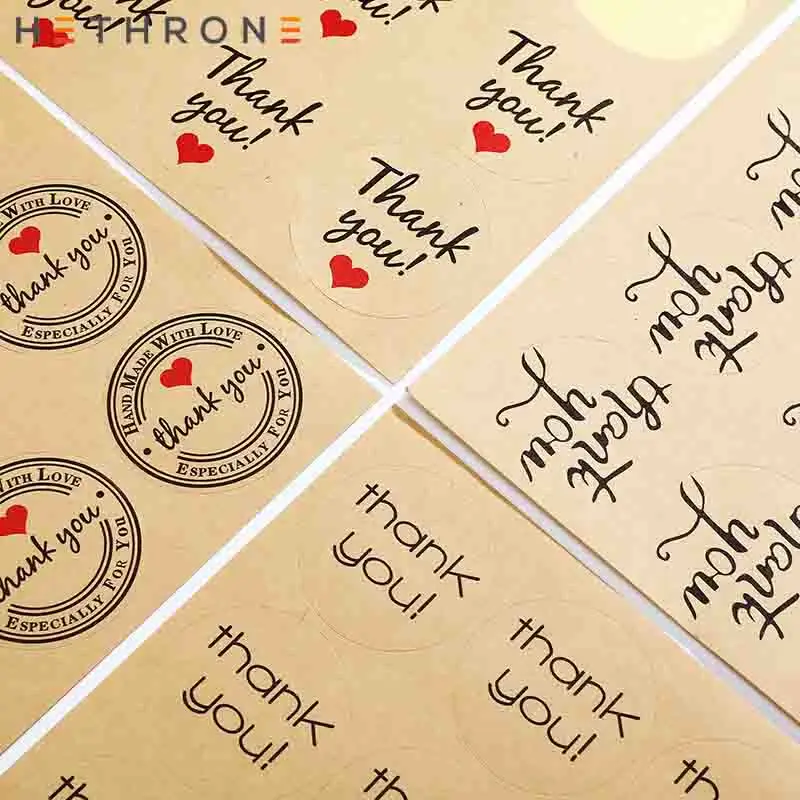 HETHRONE
you!
you!
Thank
you!
Thank
you!
Thank
you!
With Love
thank you
Especially For You
Hand Made With Love
thank you
Especially For You
With Love
thank you
Especially For You
you
thank
you
thank
you
thank
you
thank
you!
thank
you!
thank
you!
th
th
th